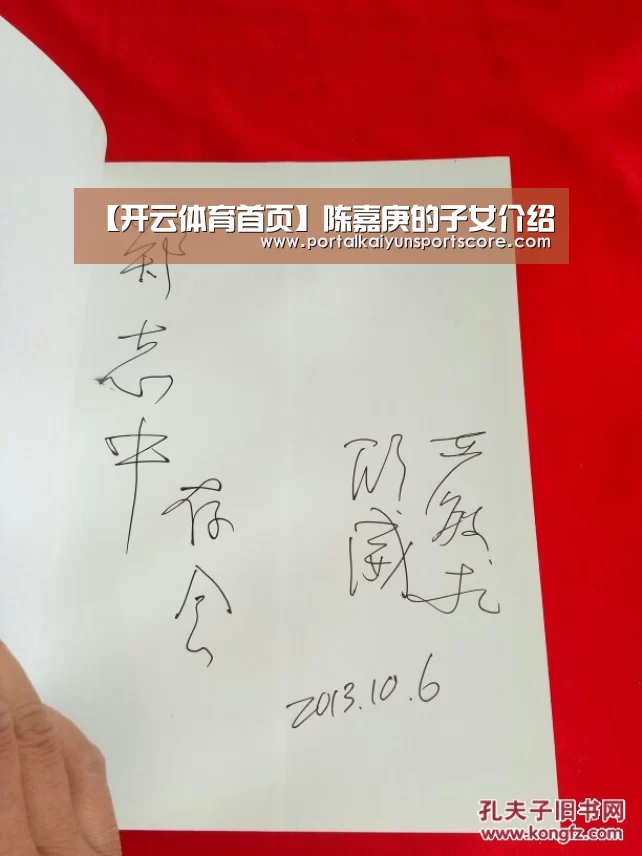 【开云体育首页】陈嘉庚的子女介绍
www.portalkaiyunsportscore.com
郑
志
中
存
念
2013.10.6
孔夫子旧书网
www.kongfz.com